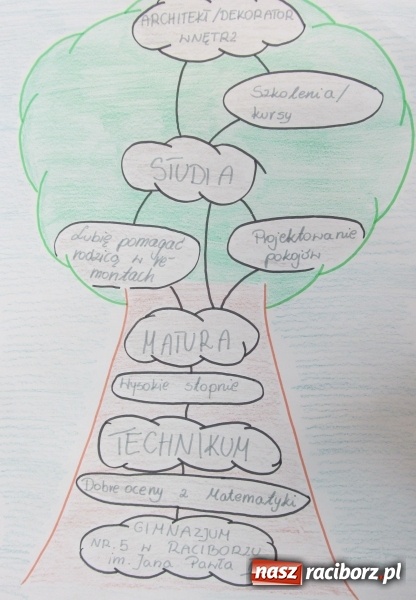 ARCHITEKT/DEKORATOR
WNĘTRZ
Szkolenia/
kursy
STUDIA
Lubię pomagać
rodzicą w re-
montach
Projektowanie
pokojów
MATURA
Wysokie stopnie
TECHNIKUM
Dobre oceny z Matematyki
GIMNAZJUM
NR.5 W RACIBORZU
im. Jana Pawła
nasz raciborz.pl